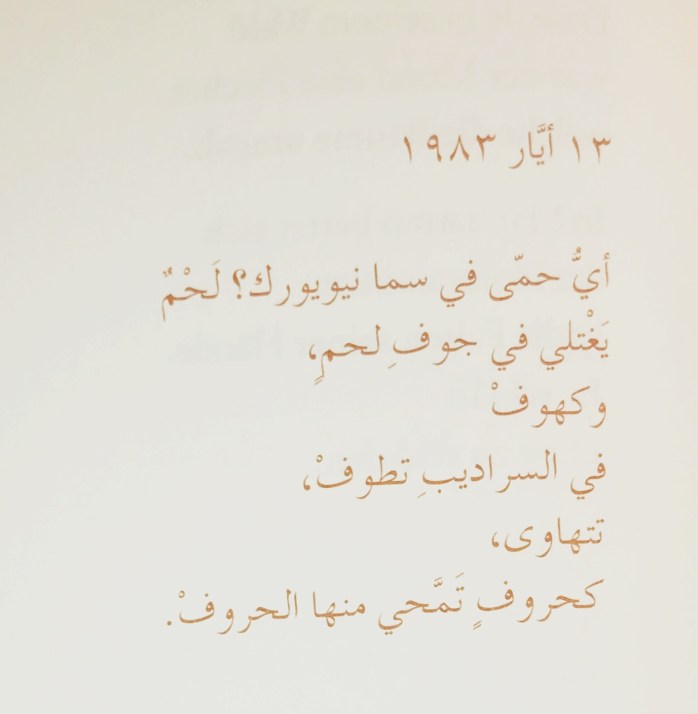 ١٣ أيَّار ١٩٨٣
أيُّ حمّى في سما نيويورك؟ لَحْمٌ
يَغْتلي في جوفِ لحمٍ،
وكهوفْ
في السراديبِ تطوفْ،
تتهاوى،
كحروفٍ تَمَّحي منها الحروفْ.